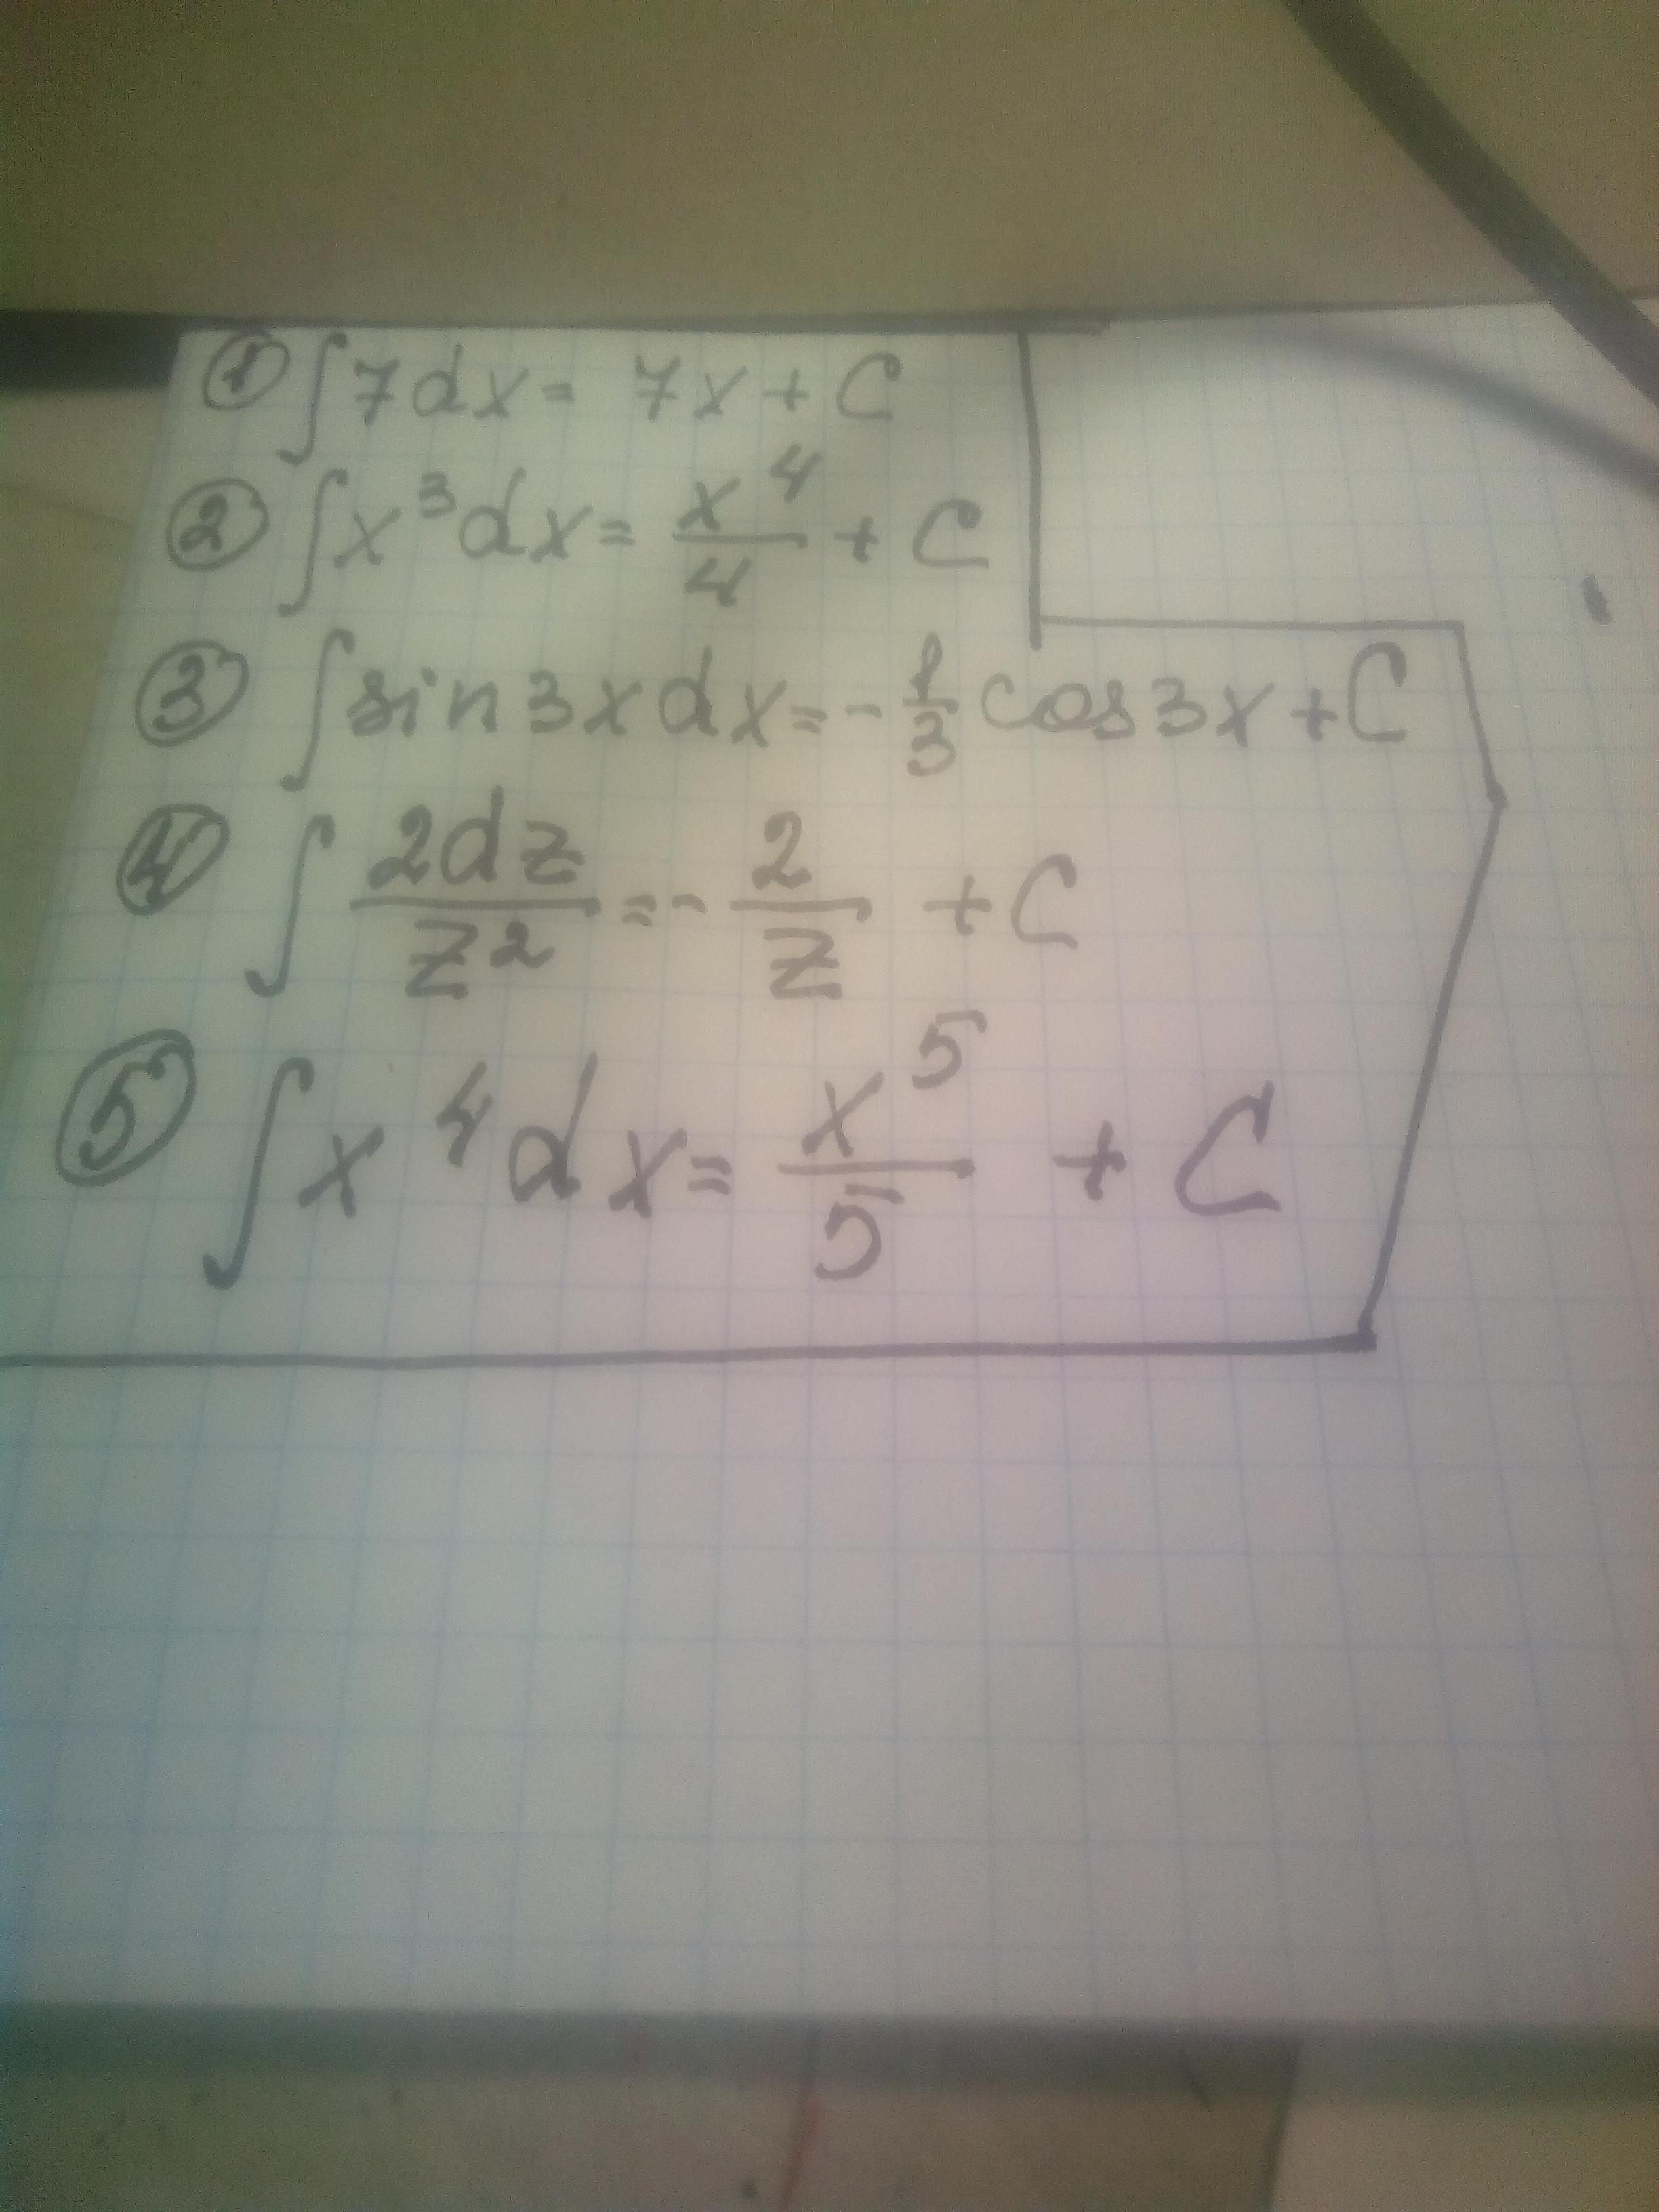 ① ∫7dx = 7x + C
② ∫x³dx = x⁴/4 + C
③ ∫sin3xdx = -1/3 cos3x + C
④ ∫2dz/z² = -2/z + C
⑤ ∫x⁴dx = x⁵/5 + C